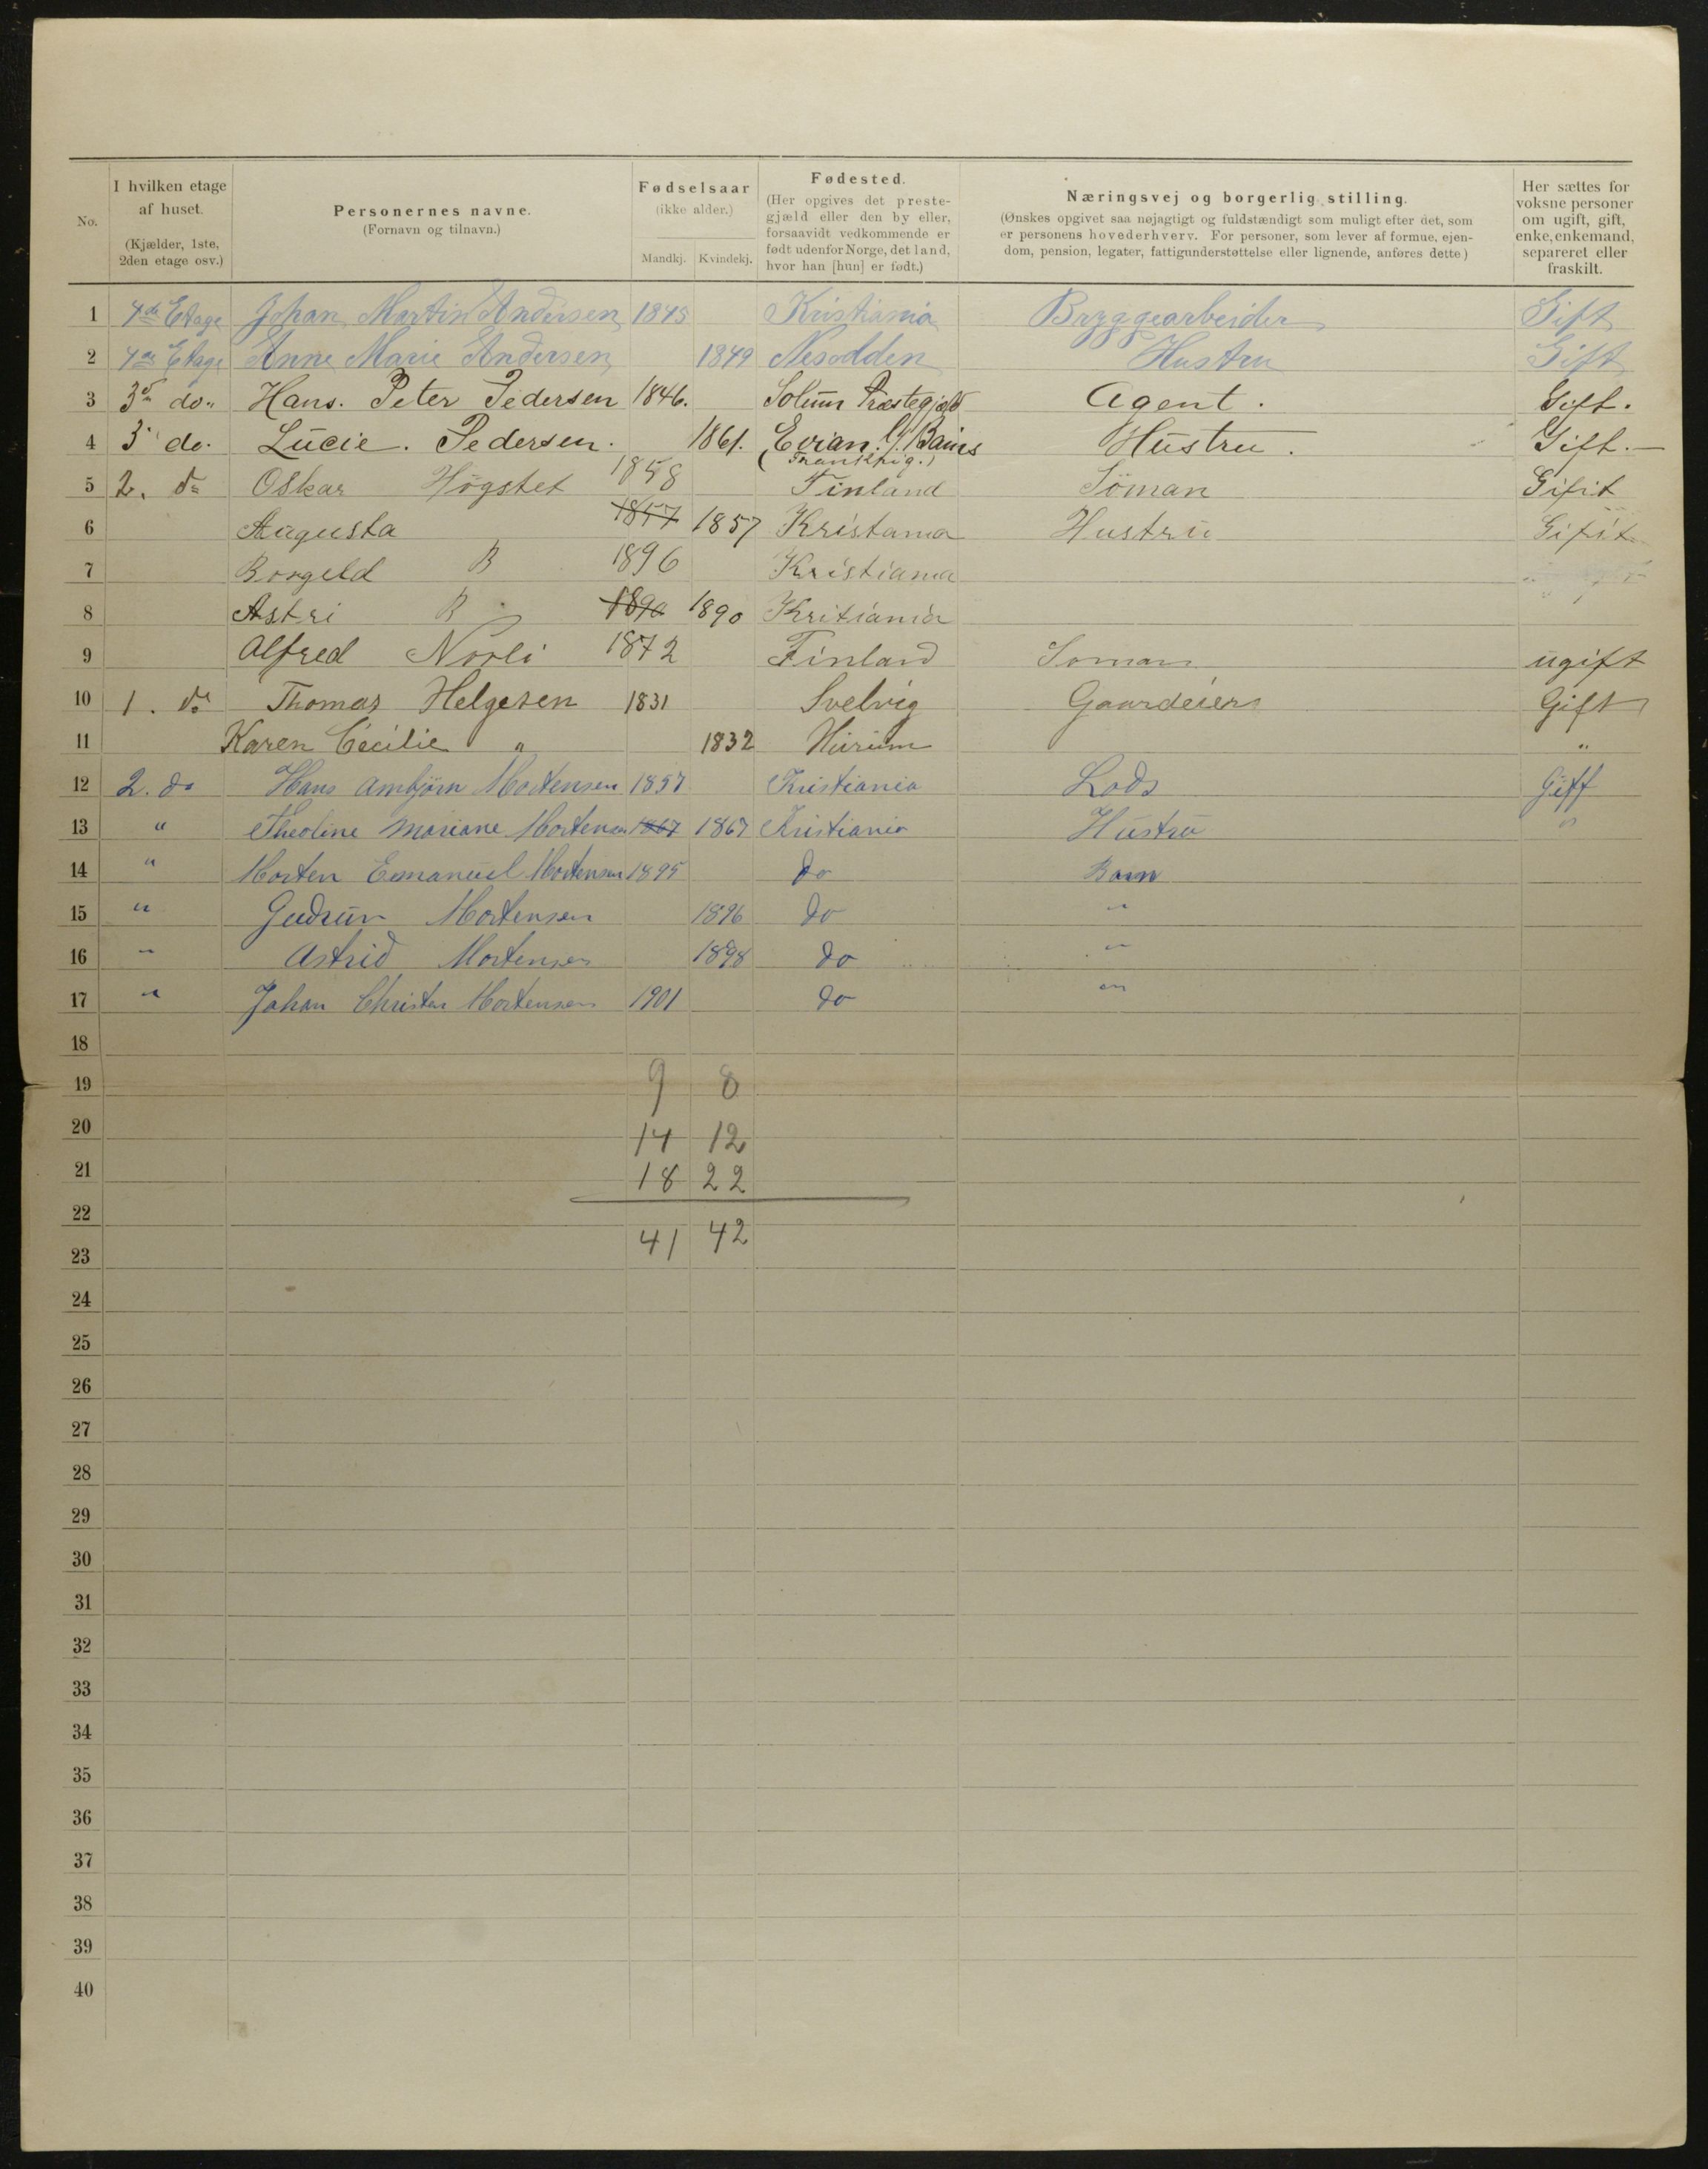 No.
I hvilken etage
af huset.
(Kjælder, 1ste,
2den etage osv.)
Personernes navne.
(Fornavn og tilnavn.)
Fødselsaar
(ikke alder.)
Mandkj. Kvindekj.
Fødested.
(Her opgives det preste-
gjæld eller den by eller,
forsaavidt vedkommende er
født udenfor Norge, det land,
hvor han [hun] er født.)
Næringsvej og borgerlig stilling.
(Ønskes opgivet saa nøjagtigt og fuldstændigt som muligt efter det, som
er personens hovederhverv. For personer, som lever af formue, ejen-
dom, pension, legater, fattigunderstøttelse eller lignende, anføres dette)
Her sættes for
voksne personer
om ugift, gift,
enke, enkemand,
separeret eller
fraskilt.
1 4de Etage Johan Martin Andersen 1845 Kristiania Bryggearbeider Gift
2 4de Etage Anne Marie Andersen 1849 Nesodden Hustru Gift
3 3die do. Hans. Peter Pedersen 1846. Solum Præstegjeld Agent. Gift.
4 3 do. Lucie. Pedersen. 1861. Evian. Bains Hustru. Gift.
(Frankrig.)
5 2. do Oskar Högstet 1858 Finland Söman Gifit
6 Augusta 1857 1857 Kristania Hustru Gifit
7 Borgeld B 1896 Kristiania
8 Astri B 1890 1890 Kritiania
9 Alfred Norli 1872 Finland Soman ugift
10 1. do Thomas Helgesen 1831 Svelvig Gaardeier Gift
11 Karen Cecilie " 1832 Hurum "
12 2. do Hans Ambjørn Mortensen 1857 Kristiania Lods Gift
13 " Theoline Mariane Mortensen 1867 1867 Kristiania Hustru "
14 " Morten Emanuel Mortensen 1895 do Barn
15 " Gudrun Mortensen 1896 do "
16 " Astrid Mortensen 1898 do "
17 " Johan Christen Mortensen 1901 do "
18
19 9 8
20 14 12
21 18 22
22
23 41 42
24
25
26
27
28
29
30
31
32
33
34
35
36
37
38
39
40